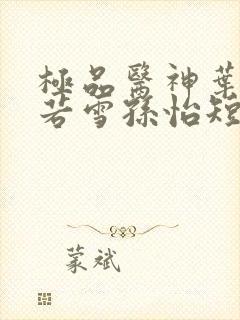 極品醫神葉
若雪孫怡短
蒙斌